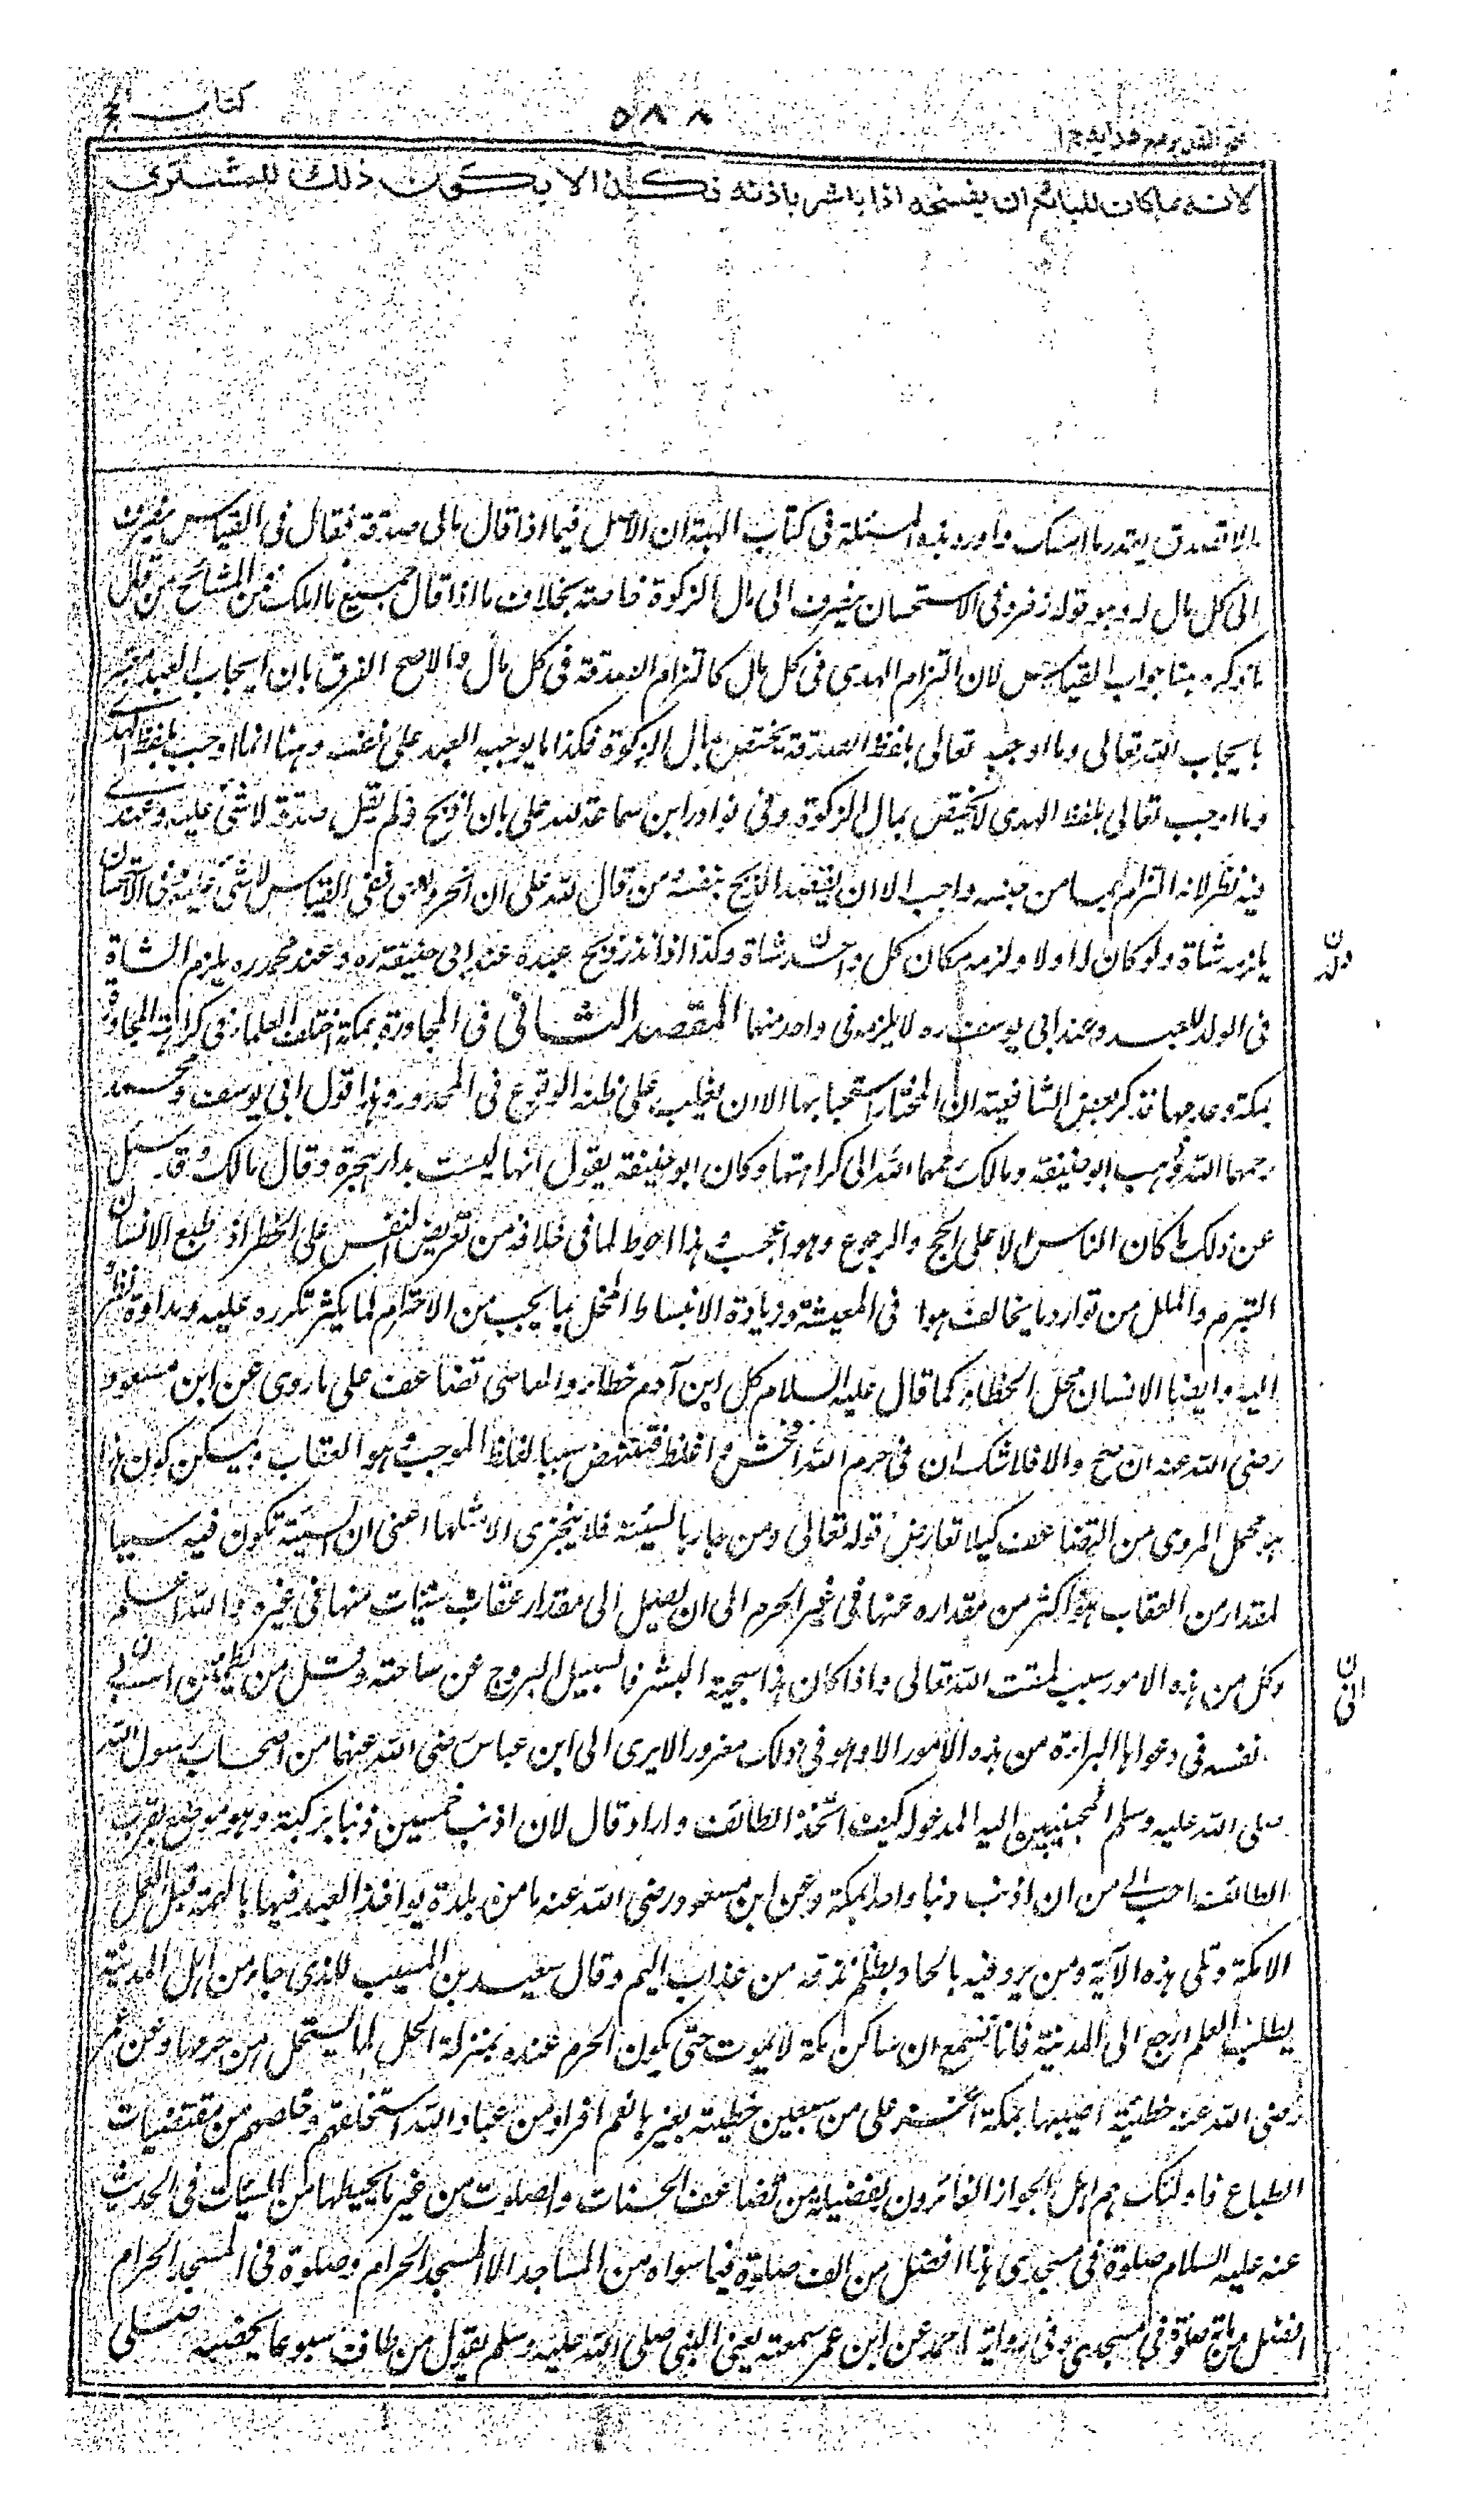 كتاب الحج
٥٨٨
فتح القدير مع هدايه ج ١
لانه ما كان للبائع ان يفسخه اذا باشر باذنه فكذا لا يكون ذلك للمشترى
الا تصدق بقدر ما امسك واورد هذه المسئلة فى كتاب الهبة ان الاصل فيما اذا قال مالى صدقة فقال فى القياس ينصرف
الى كل مال له وهو قول زفر وفى الاستحسان ينصرف الى مال الزكوة خاصة بخلاف ما اذا قال جميع ما املك فمن المشائخ من قال
ما ذكره هنا جواب القياس لان التزام الهدى فى كل مال كالتزام الصدقة فى كل مال والاصح الفرق بان ايجاب العبد معتبر
بايجاب الله تعالى وما اوجبه تعالى بلفظ الصدقة يختص بمال الزكوة فكذا ما يوجبه العبد على نفسه وهنا انما اوجب بلفظ الهدى
وما اوجب تعالى بلفظ الهدى لا يختص بمال الزكوة وفى نوادر ابن سماعة لله على بان اذبح ولم يقل صدقة لا شئ عليه وعندى
فيه نظر لانه التزام بما من جنسه واجب الا ان يقصد الذبح بنفسه ومن قال لله على ان انحر ولدى ففى القياس لا شئ عليه وفى الاستحسان
يلزمه شاة ولو كان له اولاد لزمه مكان كل واحد شاة وكذا اذا نذر ذبح عبده عند ابى حنيفة ره وعند محمد ره يلزم الشاة
فى الولد لا العبد وعند ابى يوسف ره لا يلزمه فى واحد منهما المقصد الثانى فى المجاورة بمكة اختلف العلماء فى كراهة المجاورة
بمكة وعدمها فذكر بعض الشافعية ان المختار استحبابها الا ان يغلب على ظنه الوقوع فى المحذور وهذا قول ابى يوسف ومحمد
رحمهما الله وذهب ابو حنيفة ومالك رحمهما الله الى كراهتها وكان ابو حنيفة يقول انها ليست بدار هجرة وقال مالك وقد سئل
عن ذلك ما كان الناس الا على الحج والرجوع وهو اعجب وهذا احوط لما فى خلافه من تعريض النفس على الخطر اذ طبع الانسان
التبرم والملل من توارد ما يخالف هواه فى المعيشة وزيادة الانبساط المخل بما يجب من الاحترام لما يكثر تكرره عليه ومداومة نظره
اليه وايضا الانسان محل الخطاء كما قال عليه السلام كل ابن آدم خطاء والمعاصى تضاعف على ما روى عن ابن مسعود
رضى الله عنه ان صح والا فلا شك ان فى حرم الله افحش واغلظ فتنتهض سببا لغلظ الموجب وهو العقاب ويمكن كون هذا
هو محمل المروى من التضاعف كيلا تعارض قوله تعالى ومن جاء بالسيئة فلا يجزى الا مثلها اعنى ان السيئة تكون فيه سببا
لمقدار من العقاب هو اكثر من مقداره عنها فى غير الحرم الى ان يصل الى مقدار عقاب سيئات منها فى غيره والله اعلم
وكل من هذه الامور سبب لمقت الله تعالى واذا كان هذا سجية البشر فالسبيل النزوح عن ساحته وقل من يطمئن الى
نفسه فى دعواها البراءة من هذه الامور الا وهو فى ذلك مغرور الا يرى الى ابن عباس رضى الله عنهما من اصحاب رسول الله
صلى الله عليه وسلم المحببين اليه المدعو له كيف اتخذ الطائف دارا وقال لان اذنب خمسين ذنبا بركبة وهو موضع بقرب
الطائف احب الى من ان اذنب ذنبا واحدا بمكة وعن ابن مسعود رضى الله عنه ما من بلدة يواخذ العبد فيها بالهمة قبل العمل
الا مكة وتلى هذه الآية ومن يرد فيه بالحاد بظلم نذقه من عذاب اليم وقال سعيد بن المسيب للذى جاء من اهل المدينة
يطلب العلم ارجع الى المدينة فانا نسمع ان ساكن مكة لا يموت حتى يكون الحرم عنده بمنزلة الحل لما يستحل من حرمها وعن عمر
رضى الله عنه خطيئة اصيبها بمكة اعز على من سبعين خطيئة بغيرها نعم افراد من عباد الله استخلصهم وخلصهم من مقتضيات
الطباع فاولئك هم اهل الجوار الفائزون بفضيلة من تضاعف الحسنات والصلوت من غير ما يحبطها من السيئات فى الحديث
عنه عليه السلام صلوة فى مسجدى هذا افضل من الف صلوة فيما سواه من المساجد الا المسجد الحرام وصلوة فى المسجد الحرام
افضل من مائة صلوة فى مسجدى وفى رواية احمد عن ابن عمر سمعته يعنى النبى صلى الله عليه وسلم يقول من طاف سبوعا يحصيه وصلى